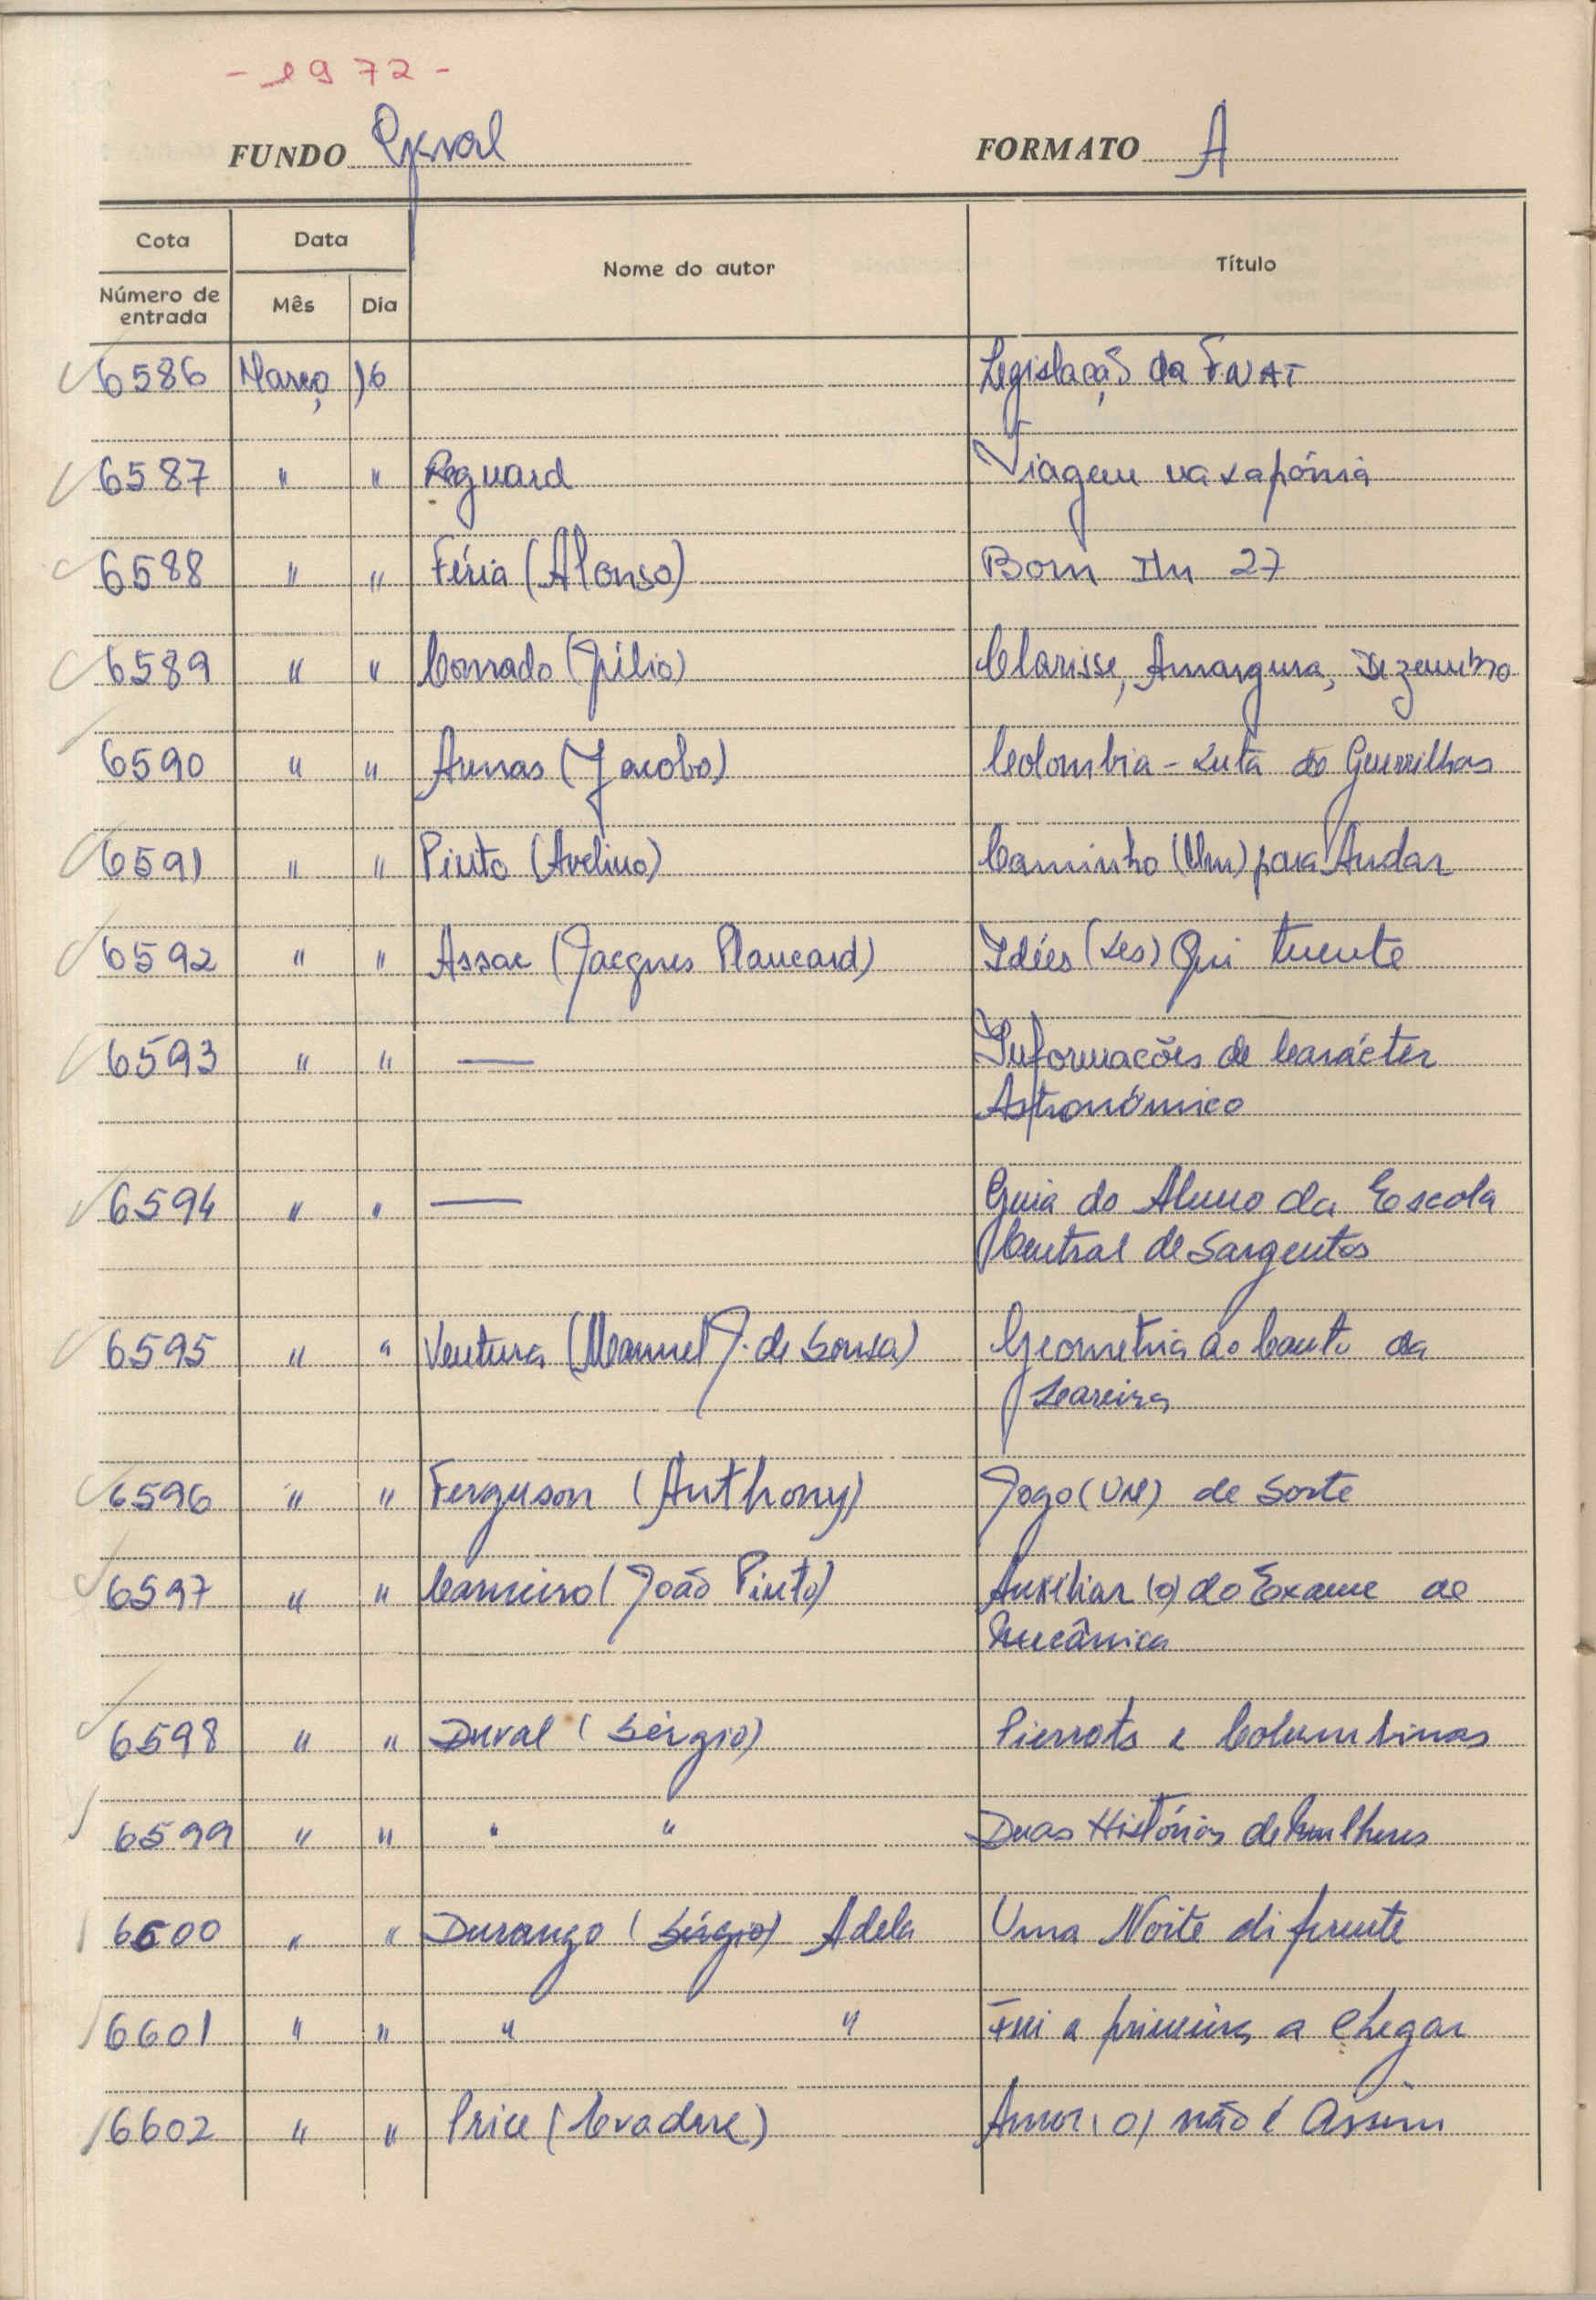 - 1972 -
FUNDO Geral FORMATO A
Cota Data Nome do autor Título
Número de entrada Mês Dia
6586 Março 16 Legislação da FNAT
6587 " " Reguard Viagem na Lapónia
6588 " " Féria (Alonso) Bom Thu 27
6589 " " Conrado (Júlio) Clarisse, Amargura, Dezembro
6590 " " Arenas (Jacobo) Colombia - Luta de Guerrilhas
6591 " " Pinto (Avelino) Caminho (Um) para Andar
6592 " " Assac (Jacques Plancard) Idées (Les) Qui tuente
6593 " " — Informações de Carácter
Astronómico
6594 " " — Guia do Aluno da Escola
Central de Sargentos
6595 " " Ventura (Manuel J. de Sousa) Geometria do Canto da
6596 " " Ferguson (Anthony) Jogo (UM) de Sorte
6597 " " Carneiro (João Pinto) Auxiliar (o) do Exame de
Mecânica
6598 " " Duval (Sérgio) Pierrots e Columbinas
6599 " " " " Duas Histórias de Mulheres
6600 " " Durango (Sérgio) Adela Uma Noite diferente
6601 " " " " Fui a primeira a chegar
6602 " " Price (Evadne) Amor (O) não é Assim